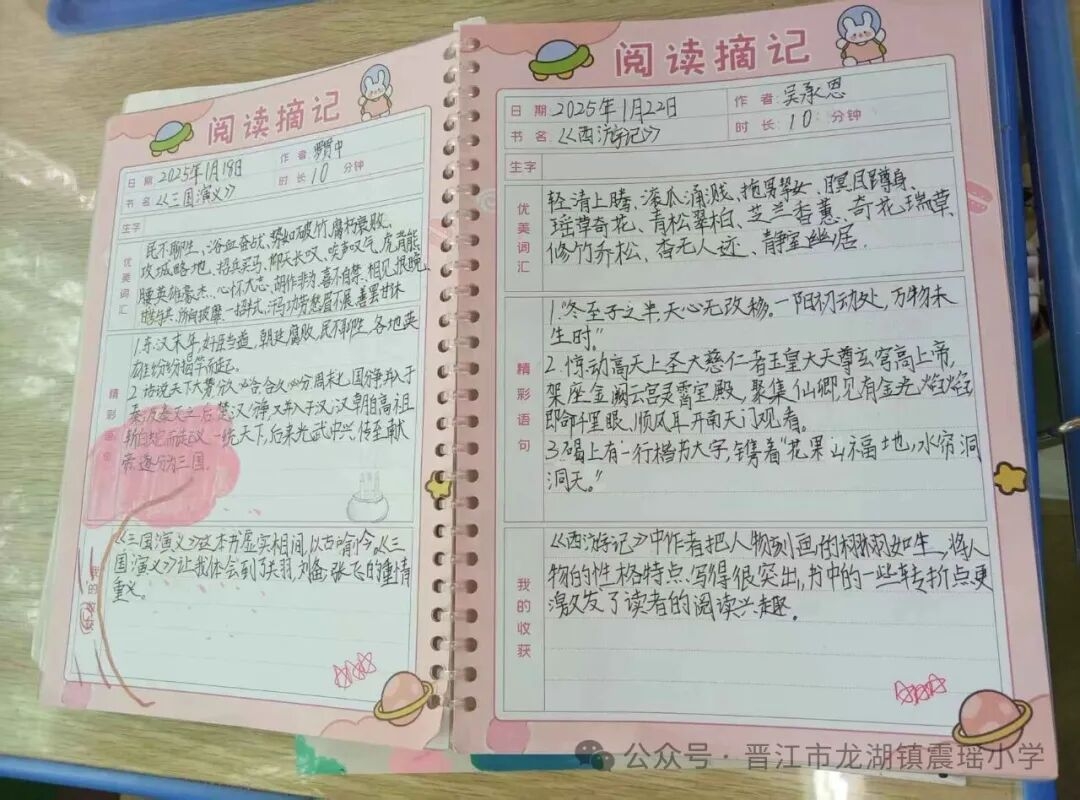 阅读摘记
日 期 2025年1月18日 作 者: 罗贯中
书 名 《三国演义》 时 长 10 分钟
生字
优美词汇
民不聊生、浴血奋战、势如破竹、腐朽衰败、
攻城略地、招兵买马、仰天长叹、唉声叹气、虎背熊
腰、英雄豪杰、心怀大志、胡作非为、喜不自禁、相见恨晚、
汗马功劳、愁眉不展、善罢甘休
精彩语句
1.东汉末年,奸臣当道,朝廷腐败,民不聊生,各地英
雄纷纷揭竿而起。
2.话说天下大势,分久必合,合久必分:周末七国分争,并入于
秦;及秦灭之后,楚汉分争,又并入于汉;汉朝自高祖
斩白蛇而起义,一统天下,后来光武中兴,传至献
帝,遂分为三国。
我的收获
《三国演义》这本书虚实相间,以古喻今。《三
国演义》让我体会到了关羽、刘备、张飞的重情
重义。
阅读摘记
日 期 2025年1月22日 作 者: 吴承恩
书 名 《西游记》 时 长: 10 分钟
生字
优美词汇
轻清上腾、滚瓜涌溅、拖男挈女、瞑目蹲身、
瑶草奇花、青松翠柏、芝兰香蕙、奇花瑞草、
修竹乔松、杳无人迹、静室幽居。
精彩语句
1."冬至子之半,天心无改移。一阳初动处,万物未
生时。"
2.惊动高天上圣大慈仁者玉皇大天尊玄穹高上帝,
驾座金阙云宫灵霄宝殿,聚集仙卿,见有金光焰焰,
即命千里眼、顺风耳开南天门观看。
3.碣上有一行楷书大字,镌着"花果山福地,水帘洞
洞天。"
我的收获
《西游记》中作者把人物刻画的栩栩如生,将人
物的性格特点写得很突出,书中的一些转折点更
激发了读者的阅读兴趣。
公众号·晋江市龙湖镇震瑶小学